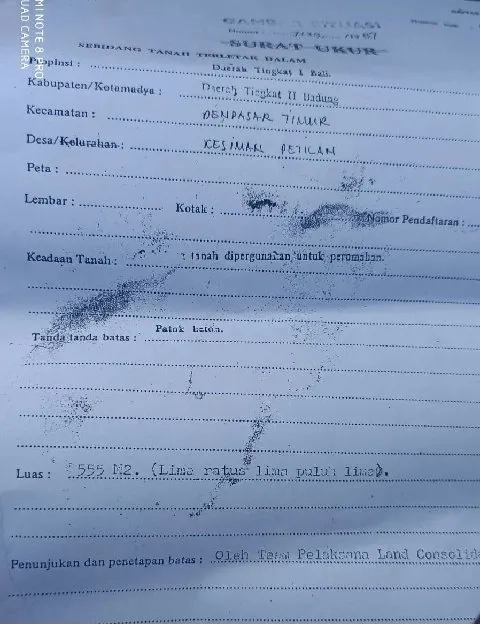 GAMBAR SITUASI
SURAT UKUR
SEBIDANG TANAH TERLETAK DALAM
Propinsi : Daerah Tingkat I Bali.
Kabupaten/Kotamadya : Daerah Tingkat II Badung
Kecamatan : DENPASAR TIMUR
Desa/Kelurahan : KESIMAN PETILAN
Peta :
Lembar : Kotak : Nomor Pendaftaran :
Keadaan Tanah : tanah dipergunakan untuk perumahan.
Tanda tanda batas : Patok beton.
Luas : 555 M2. (Lima ratus lima puluh lima).
Penunjukan dan penetapan batas : Oleh Team Pelaksana Land Consolid
MI NOTE 8 PRO
QUAD CAMERA